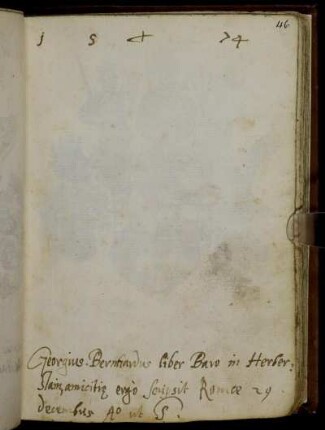 46
1 5 + 74
Georgius Bernhardus liber Baro in Herber:
stain amicitię ergo scripsit Romæ 29
decembris Ao ut S.